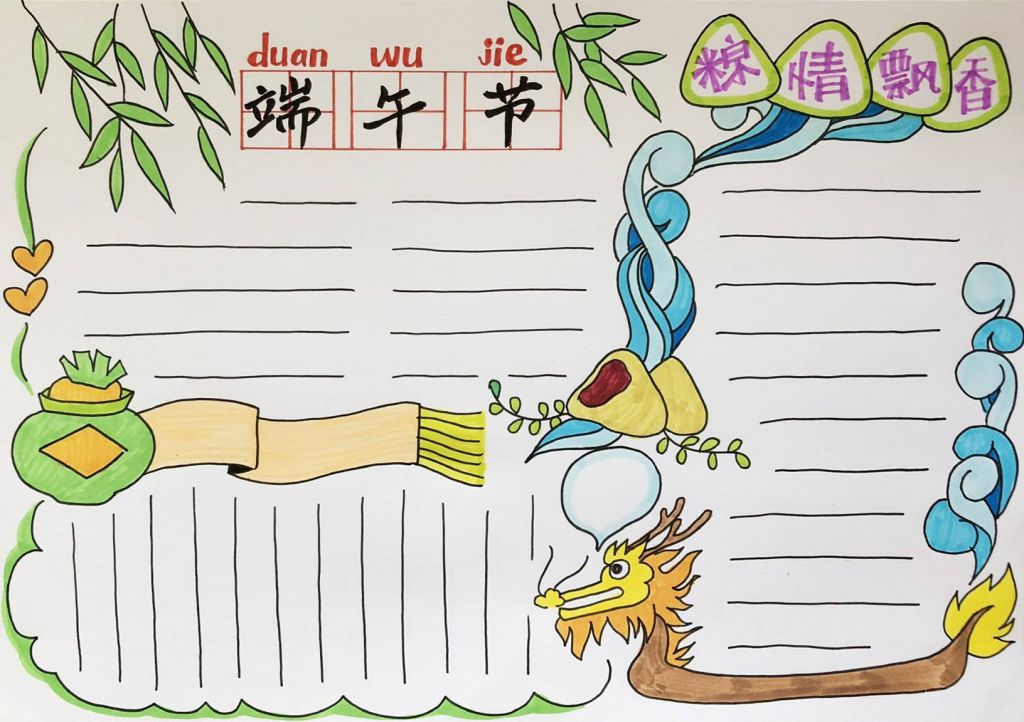 duan wu jie
端午节
粽情飘香